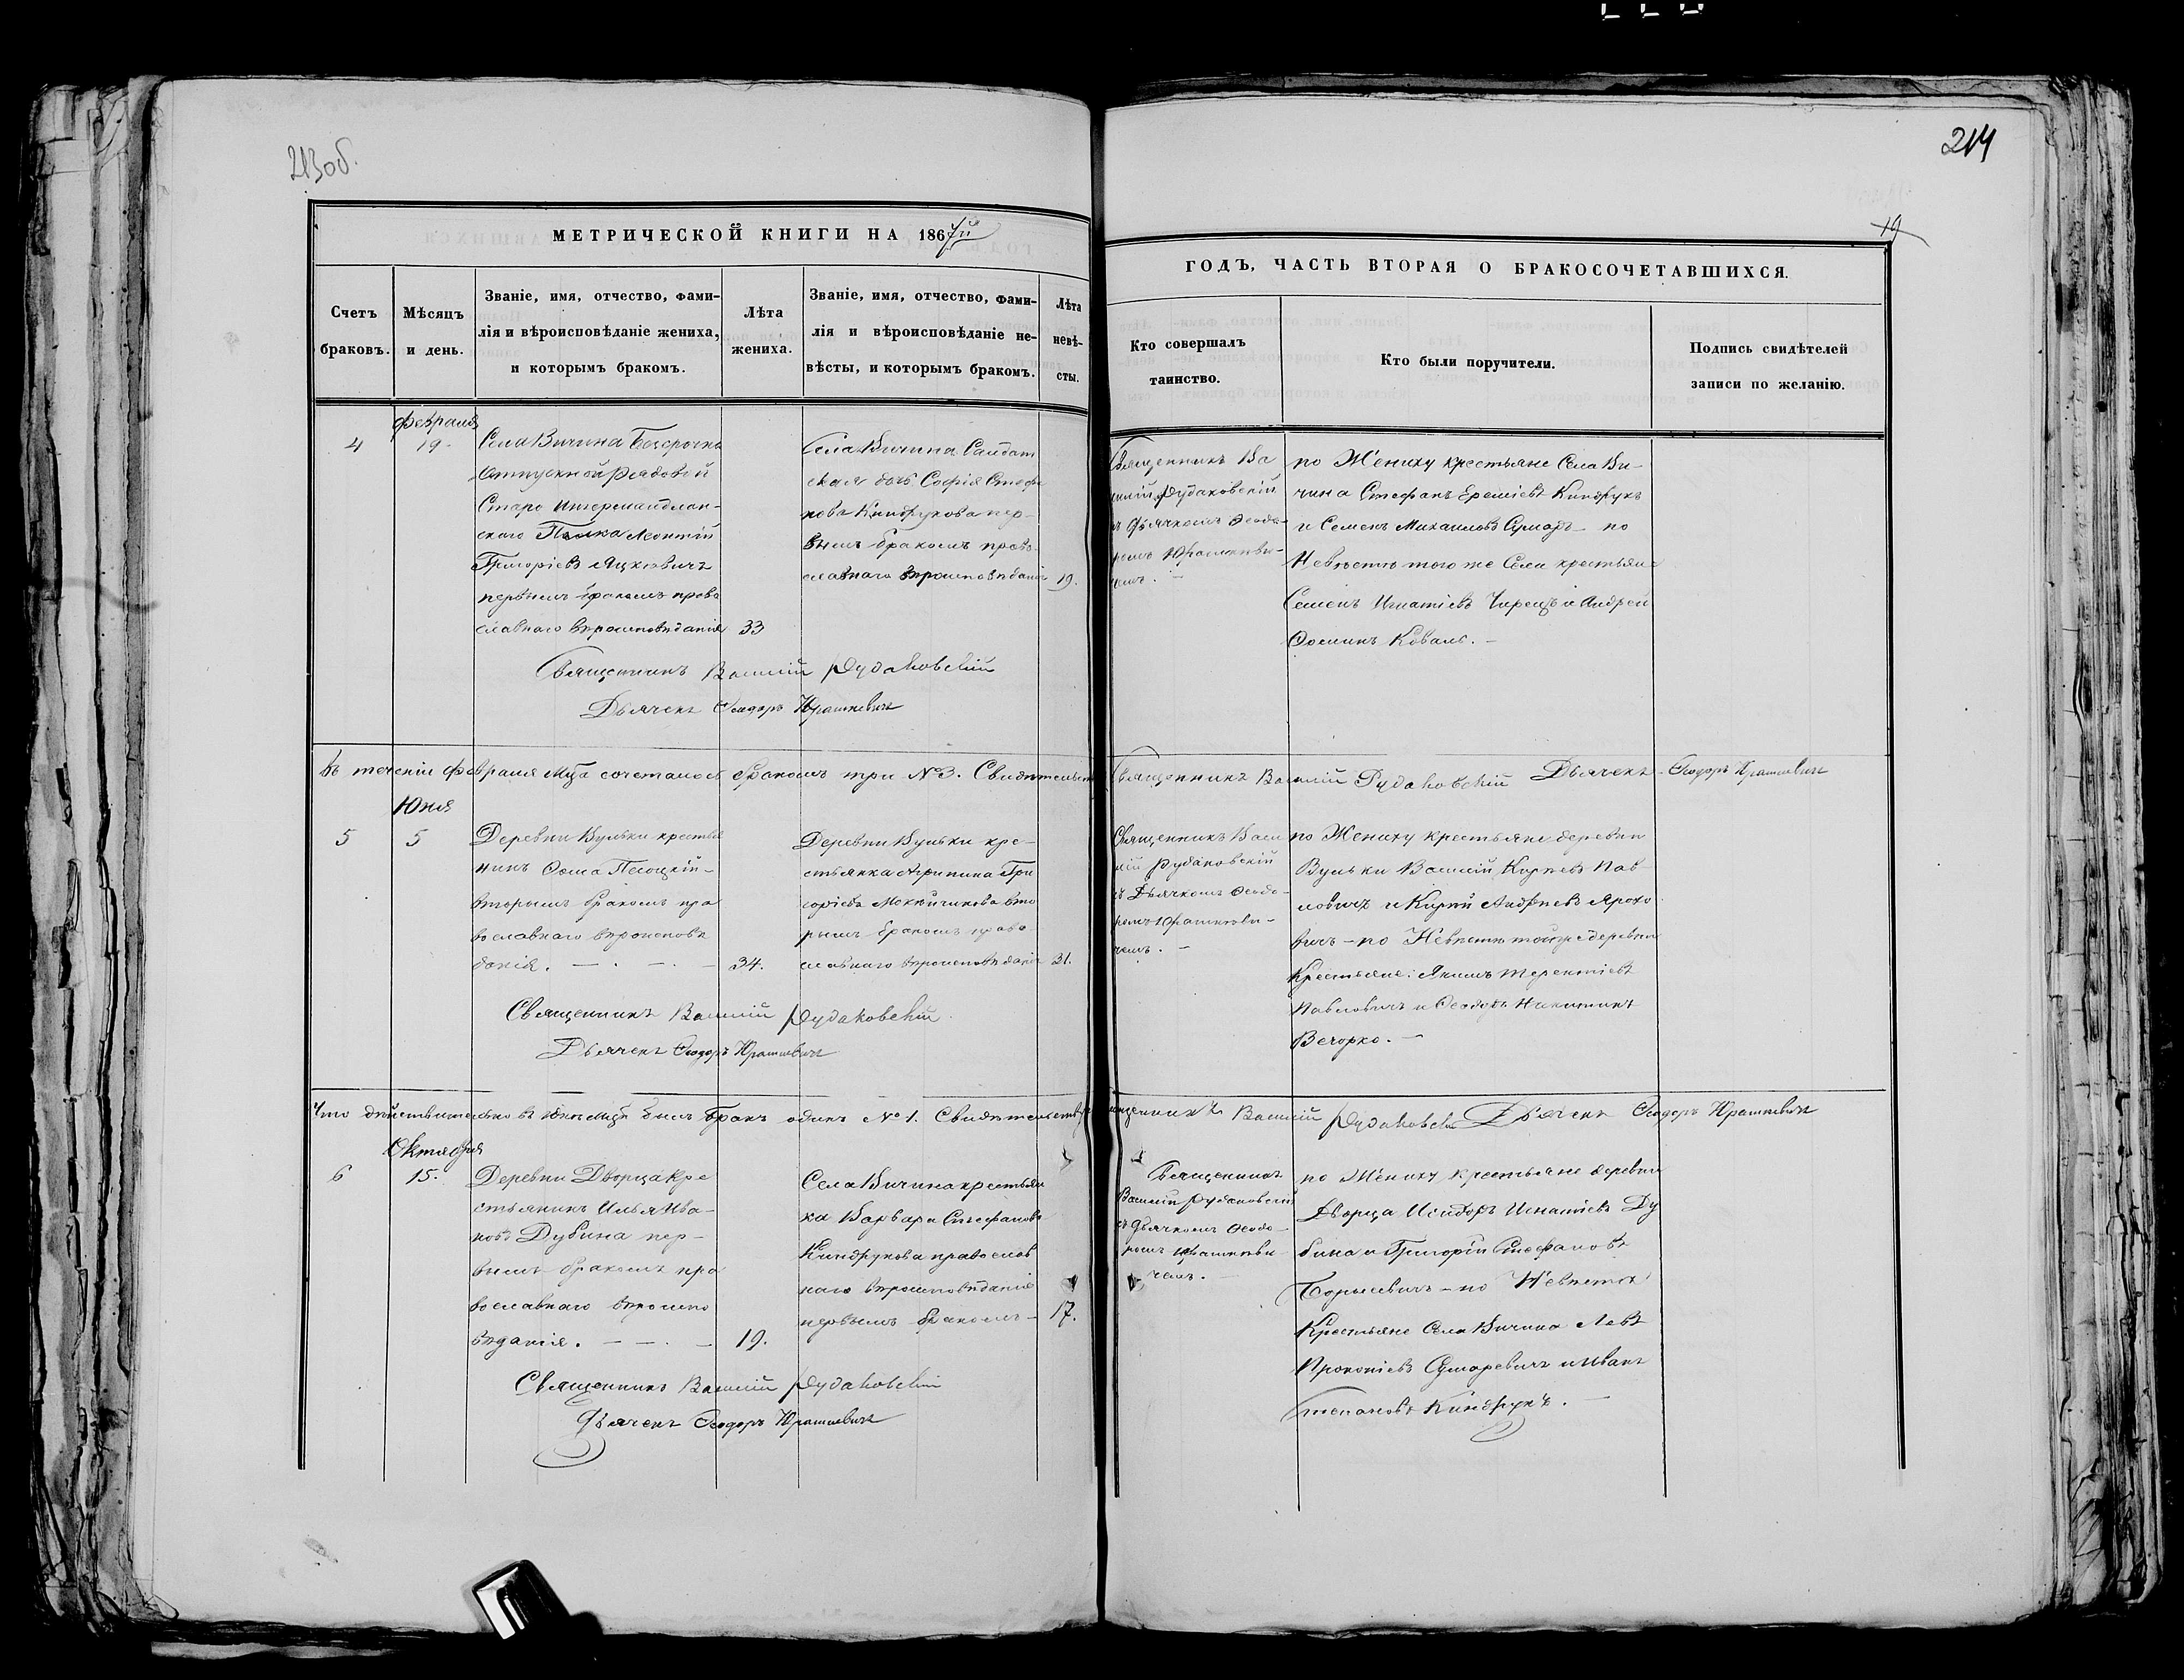 213об.
214
19
МЕТРИЧЕСКОЙ КНИГИ НА 1867й
ГОДЪ, ЧАСТЬ ВТОРАЯ О БРАКОСОЧЕТАВШИХСЯ.
Счетъ
браковъ.
Мѣсяцъ
и день.
Званіе, имя, отчество, фами-
лія и вѣроисповѣданіе жениха,
и которымъ бракомъ.
Лѣта
жениха.
Званіе, имя, отчество, фами-
лія и вѣроисповѣданіе не-
вѣсты, и которымъ бракомъ.
Лѣта
невѣ-
сты.
Кто совершалъ
таинство.
Кто были поручители.
Подпись свидѣтелей
записи по желанію.
4
Февраля
19.
Села Вичина Безсрочно
отпускной Рядовой
Старо Ингерманлан-
скаго Полка Леонтій
Григоріевъ Яцкевичъ
первымъ бракомъ право
славнаго вѣроисповѣданія
33
Села Вичина Салдат
ская дочь Софія Стефа
нова Киндрукова пер-
вымъ бракомъ право-
славнаго вѣроисповѣданія
19.
Священникъ Ва
силій Рудаковскій
съ Дьячкомъ Феодо-
ромъ Юрашкеви-
чемъ. —
по Жениху крестьяне Села Ви-
чина Стефанъ Еремѣевъ Киндрукъ
и Семенъ Михаиловъ Сумаръ - по
Невѣстѣ того же Села крестьяне
Семенъ Игнатіевъ и Андрей
Фоминъ Коваль. —
Священникъ Василій Рудаковскій
Дьячекъ Феодоръ Юрашкевичъ
Въ теченіи Февраля Мца сочеталось бракомъ три №3. Свидѣтельств
Священникъ Василій Рудаковскій Дьячекъ Феодоръ Юрашкевичъ
Юня
5
5
Деревни Вульки крестья
нинъ Фома Песоцкій -
вторымъ бракомъ пра
вославнаго вѣроисповѣ
данія. — . — . —
34.
Деревни Вульки кре-
стьянка Агрипина Гри
горіева вто
рымъ бракомъ право
славнаго вѣроисповѣданія
31.
Священникъ Васи
лій Рудаковскій
съ Дьячкомъ Феодо-
ромъ Юрашкеви-
чемъ. —
по Жениху крестьяне деревни
Вульки Василій Карпевъ Пав
ловичъ и Карпъ Андреевъ Ярохо
вичъ - по Невѣстѣ тойже деревни
Крестьяне: Якимъ Терентіевъ
Павловичъ и Феодоръ Никитинъ
Вечорко. —
Священникъ Василій Рудаковскій
Дьячекъ Феодоръ Юрашкевичъ
Что дѣйствительно въ Юнѣ Мцѣ былъ Бракъ одинъ №1. Свидѣтельству
Священникъ Василій Рудаковскій Дьячекъ Феодоръ Юрашкевичъ
Октября
6
15.
Деревни Дворца кре
стьянинъ Илья Ива-
новъ Дубина пер-
вымъ бракомъ пра
вославнаго вѣроиспо
вѣданія. — . —
19.
Села Вичина крестьян
ка Варвара Стефанова
Киндрукова православ
наго вѣроисповѣданія
первымъ бракомъ —
17.
Священникъ
Василій Рудаковскій
съ Дьячкомъ Феодо-
ромъ Юрашкеви-
чемъ. —
по Жениху крестьяне деревни
Дворца Исидоръ Игнатіевъ Ду
бина и Григорій Стефановъ
Борисевичъ - по Невѣстѣ
Крестьяне Села Вичина Левъ
Прокопіевъ Сумаревичъ и Иванъ
Степановъ Киндрукъ. —
Священникъ Василій Рудаковскій
Дьячекъ Феодоръ Юрашкевичъ